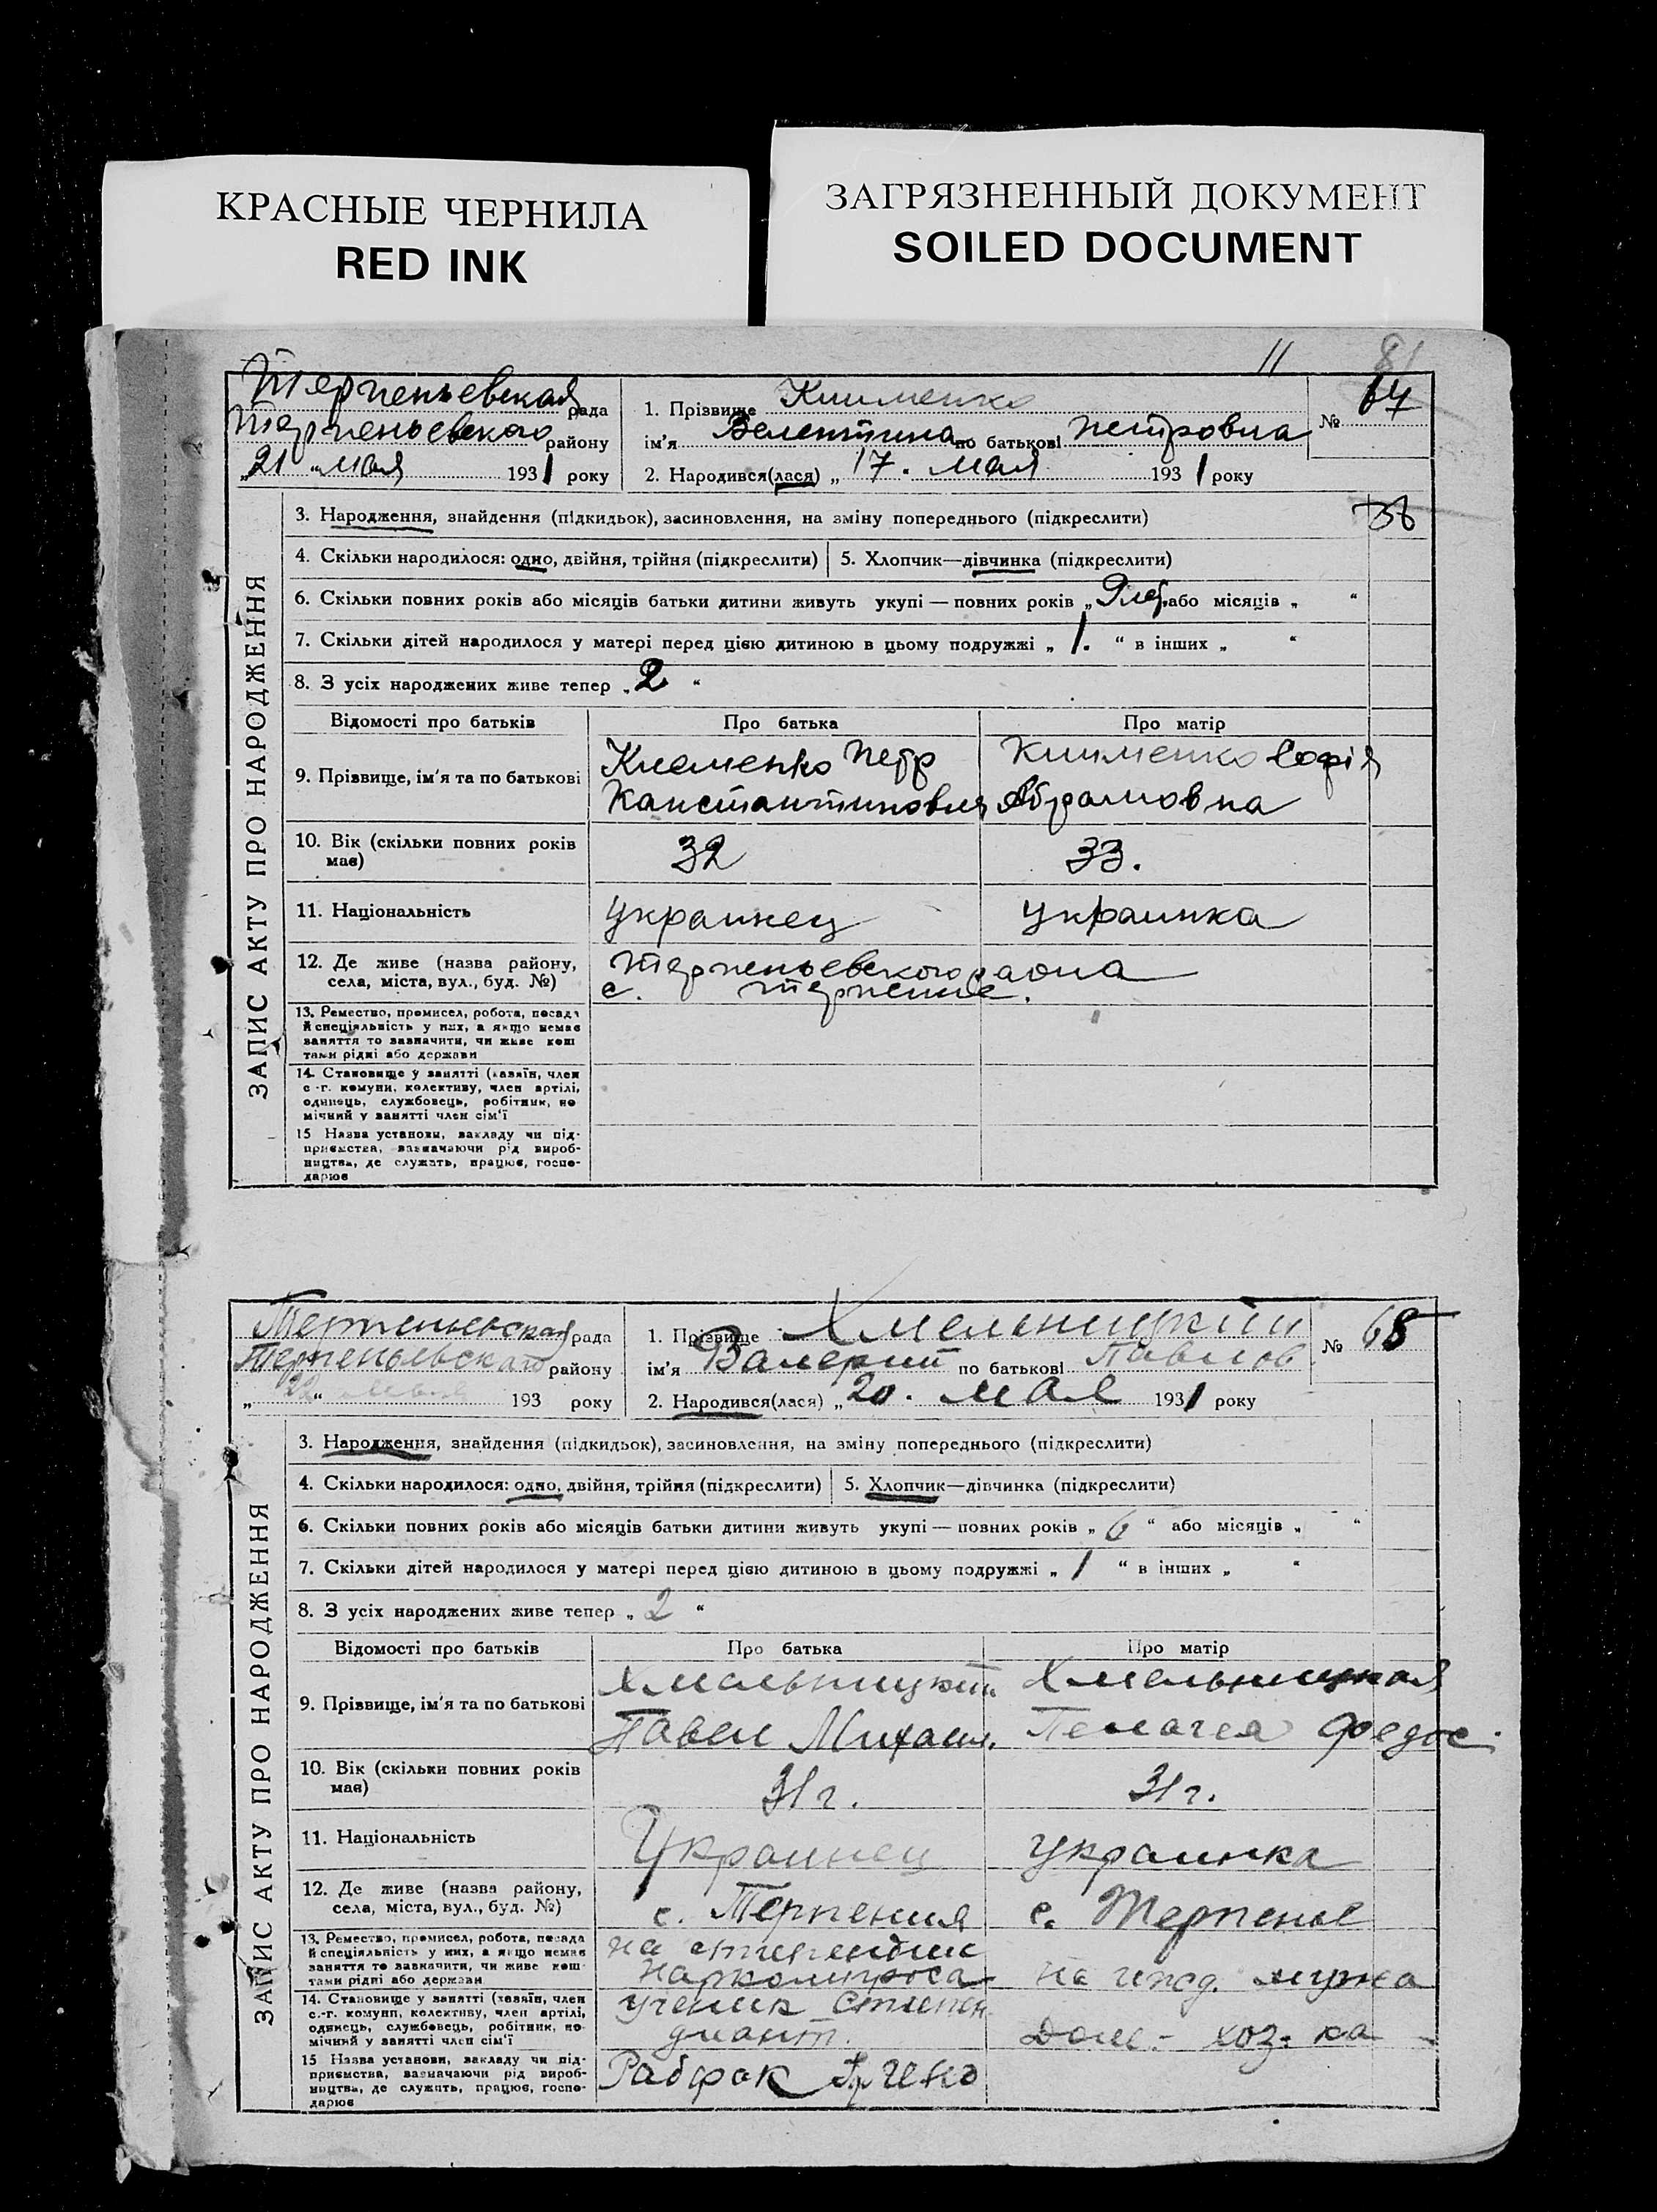 КРАСНЫЕ ЧЕРНИЛА
RED INK
ЗАГРЯЗНЕННЫЙ ДОКУМЕНТ
SOILED DOCUMENT
11 81
Терпеньевская рада
Терпеньевского району
„21 “ мая 1931 року
1. Прізвище Клименко
ім'я Велентина по батькові Петровна
2. Народився(лася) „ 17. мая 1931 року
№ 67
ЗАПИС АКТУ ПРО НАРОДЖЕННЯ
3. Народження, знайдення (підкидьок), засиновлення, на зміну попереднього (підкреслити)
4. Скільки народилося: одно, двійня, трійня (підкреслити) 5. Хлопчик—дівчинка (підкреслити)
6. Скільки повних років або місяців батьки дитини живуть укупі — повних років „ 9 лет або місяців „ “
7. Скільки дітей народилося у матері перед цією дитиною в цьому подружжі „ 1. “ в інших „ “
8. З усіх народжених живе тепер „ 2 “
Відомості про батьків Про батька Про матір
9. Прізвище, ім'я та по батькові
Клеменко Петр
Канстантиновия
Клименко Софія
Абрамовна
10. Вік (скільки повних років має) 32 33.
11. Національність украинец украинка
12. Де живе (назва району, села, міста, вул., буд. №)
Терпеньевского раона
с. Терпение.
13. Ремество, промисел, робота, посада
й спеціяльність у них, а якщо немає
заняття то зазначити, чи живе кош
тами рідні або держави
14. Становище у занятті (хазяїн, член
с.-г. комуни, колективу, член артілі,
одинець, службовець, робітник, по
мічний у занятті член сім'ї
15 Назва установи, закладу чи під-
приємства, зазначаючи рід вироб-
ництва, де служить, працює, госпо-
дарює
Терпеньевская рада
Терпеньевского району
„ 22 “ мая 193 року
1. Прізвище Хмельницкий
ім'я Валерий по батькові Павлов
2. Народився(лася) „ 20. мая 1931 року
№ 68
ЗАПИС АКТУ ПРО НАРОДЖЕННЯ
3. Народження, знайдення (підкидьок), засиновлення, на зміну попереднього (підкреслити)
4. Скільки народилося: одно, двійня, трійня (підкреслити) 5. Хлопчик—дівчинка (підкреслити)
6. Скільки повних років або місяців батьки дитини живуть укупі — повних років „ 6 “ або місяців „ “
7. Скільки дітей народилося у матері перед цією дитиною в цьому подружжі „ 1 “ в інших „ “
8. З усіх народжених живе тепер „ 2 “
Відомості про батьків Про батька Про матір
9. Прізвище, ім'я та по батькові
Хмельницкий
Павел Михаил.
Хмельницкая
Пелагея Федос.
10. Вік (скільки повних років має) 31 г. 31 г.
11. Національність Украинец украинка
12. Де живе (назва району, села, міста, вул., буд. №) с. Терпения с. Терпенье
13. Ремество, промисел, робота, посада
й спеціяльність у них, а якщо немає
заняття то зазначити, чи живе кош-
тами рідні або держави
на стипендии
наркомпроса
на ижд. мужа
14. Становище у занятті (хазяїн, член
с.-г. комуни, колективу, член артілі,
одинець, службовець, робітник, по
мічний у занятті член сім'ї
ученик стипен
диант.
Дом.- хоз-ка
15 Назва установи, закладу чи під-
приємства, зазначаючи рід вироб-
ництва, де служить, працює, госпо-
дарює
Рабфак